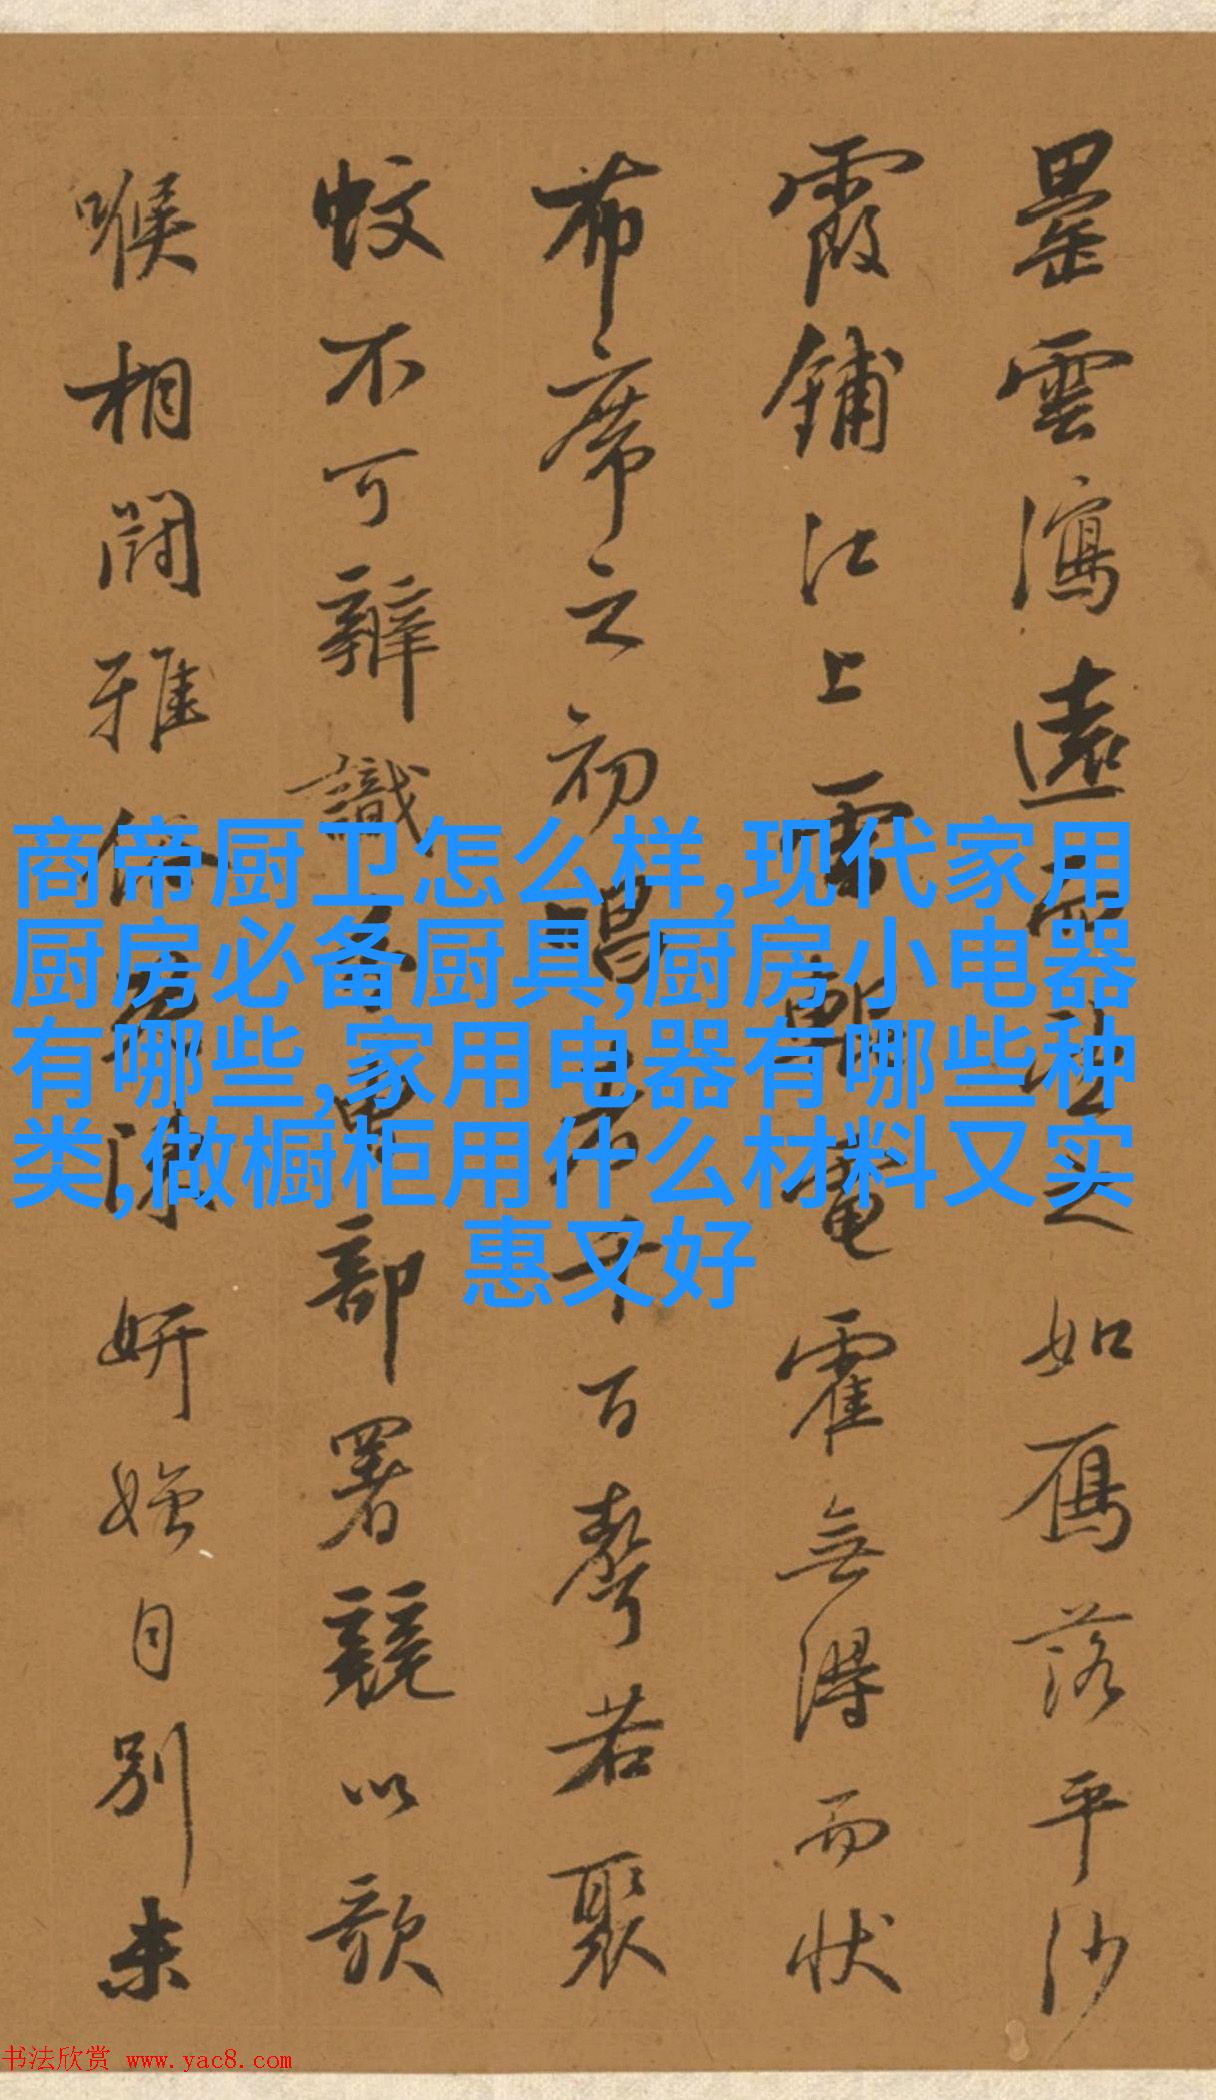 罍雲瀉遠而望之如雁落平沙
霞鋪江上雷輥電霍無得而狀
布席之初唱者千百聲若聚
蚊不可辨識分曹部署競以歌
喉相鬪雅俗既陳妍媸自別未
商帝厨卫怎么样,现代家用
厨房必备厨具,厨房小电器
有哪些,家用电器有哪些种
类,做橱柜用什么材料又实
惠又好
书法欣赏 www.yac8.com